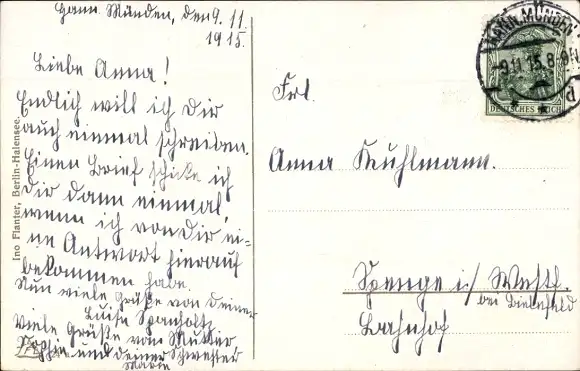 Hann. Münden, den 9. 11.
1915.
Liebe Anna!
Endlich will ich Dir
auch einmal schreiben.
Einen Brief schicke ich
Dir dann einmal,
wenn ich von Dir ei-
ne Antwort hierauf
bekommen habe.
Nun viele Grüße von Deiner
Luise
Viele Grüße von Mutter
und deiner Schwester
Marie
Ino Flanter, Berlin-Halensee.
HANN. MÜNDEN
9.11.15. 8-9N.
DEUTSCHES REICH
Frl.
Anna Kuhlmann.
Spenge i/ Westf.
bei Bielefeld
Bahnhof